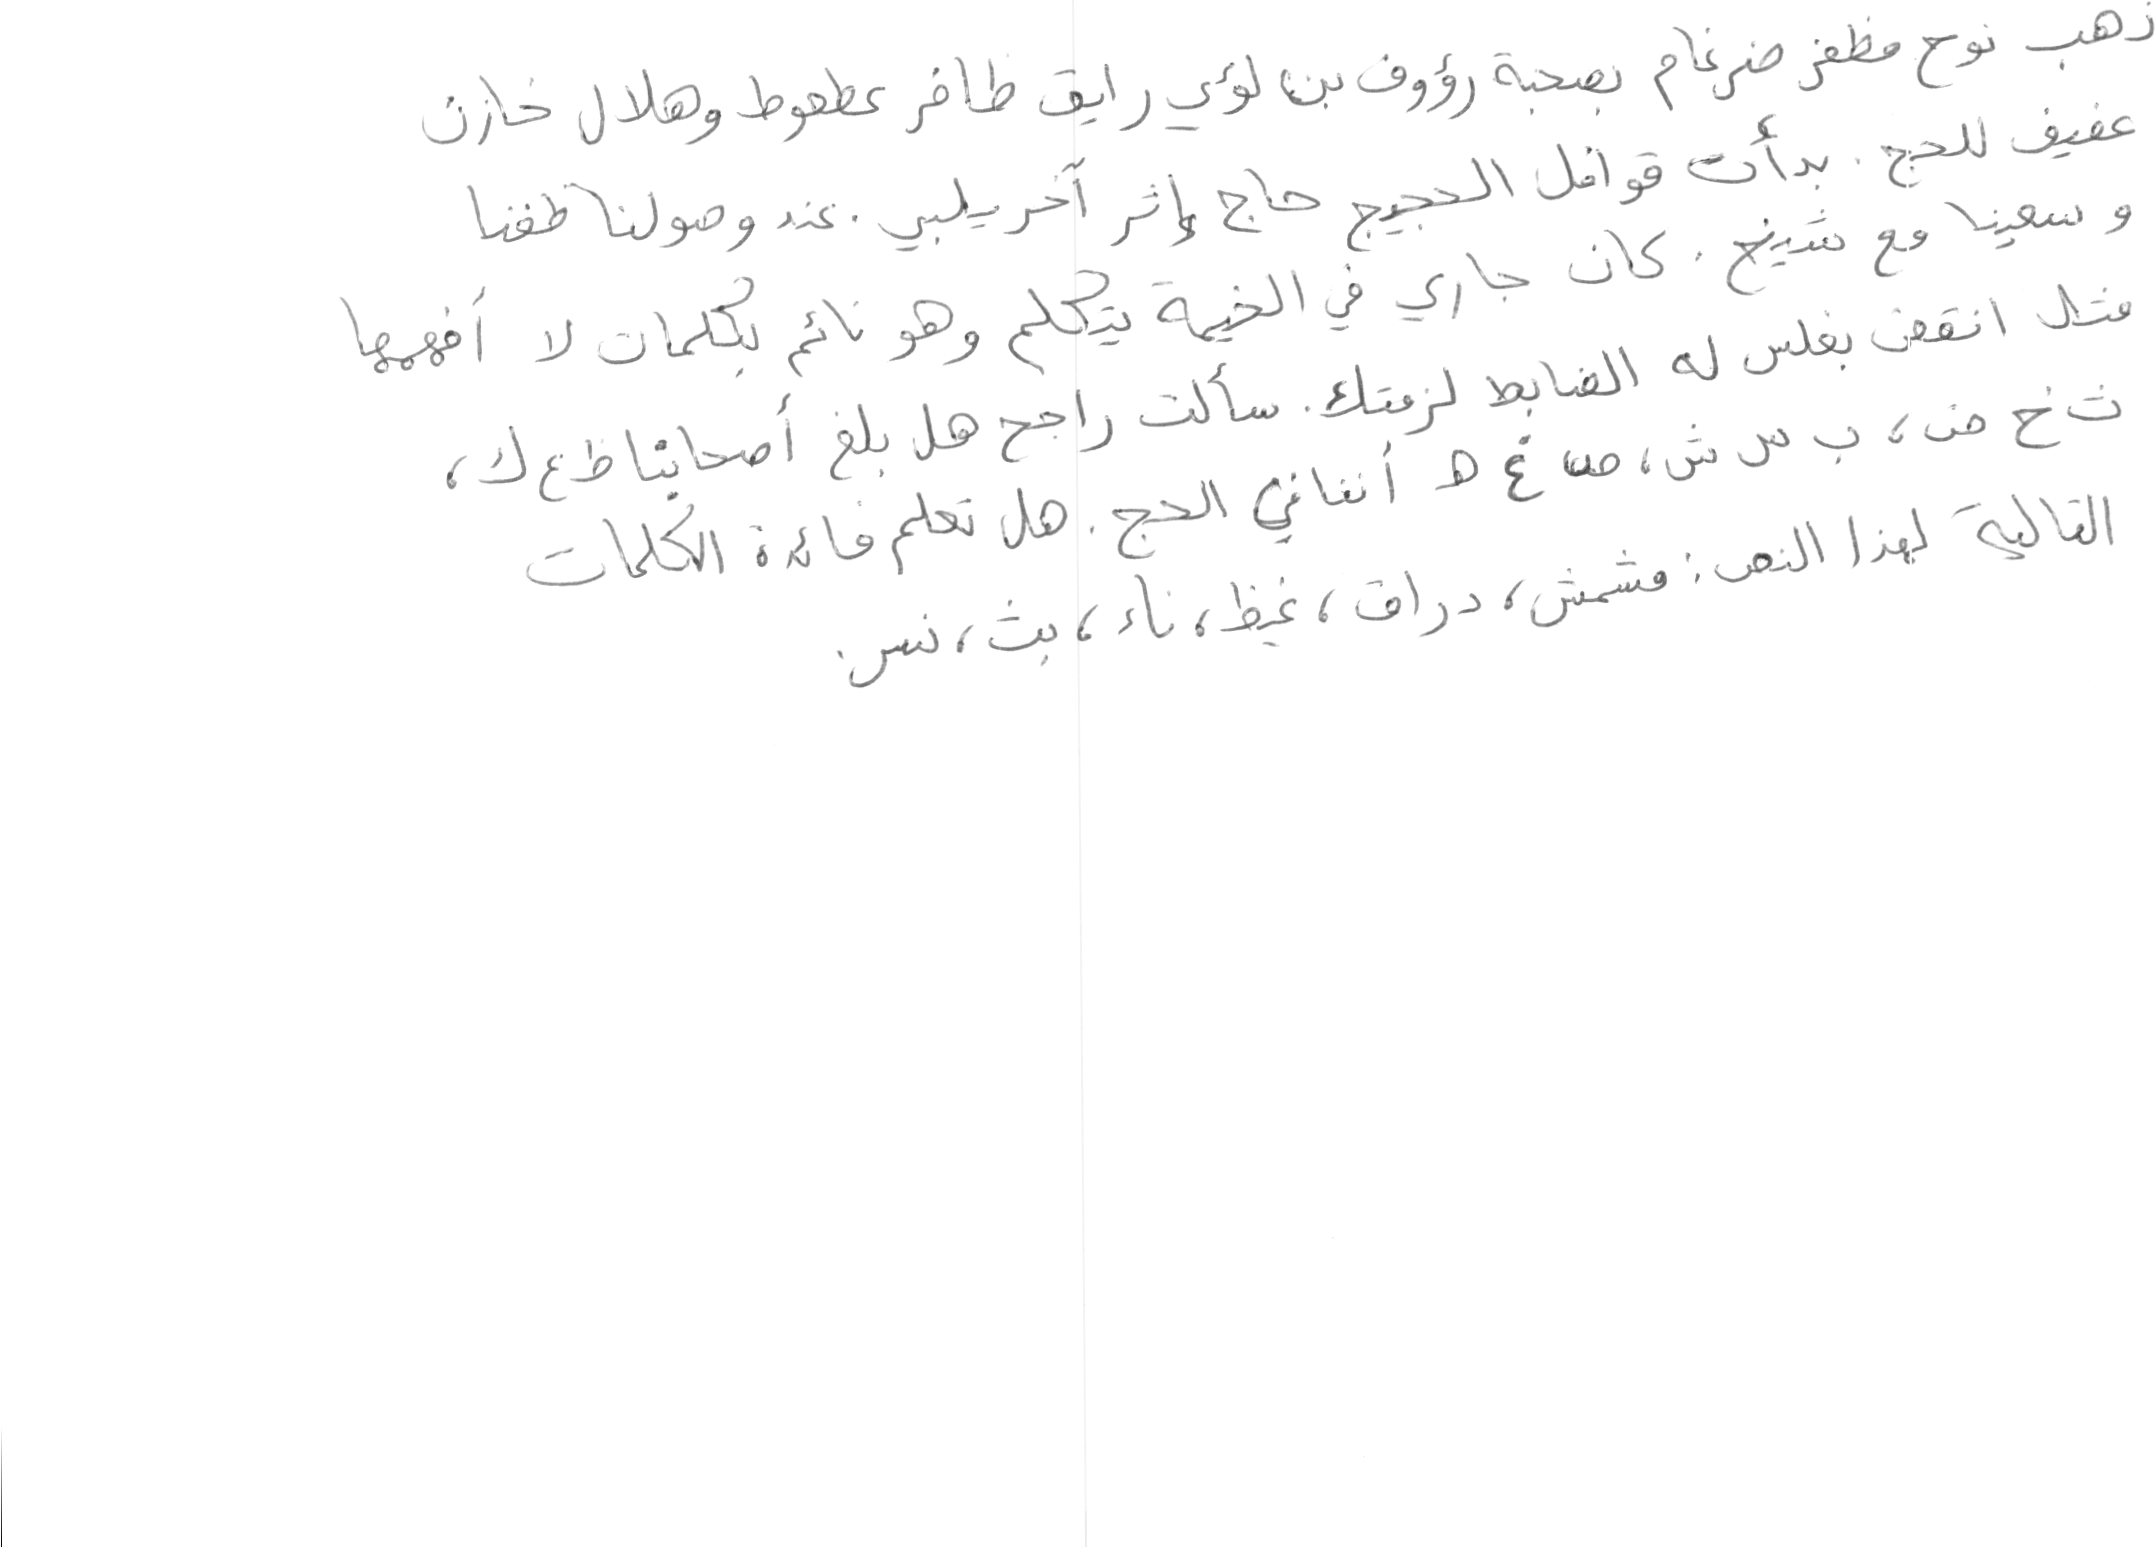 ذهب نوح مظفر ضرغام بصحبة رؤوف بن لؤي رايق ظافر عطعوط وهلال خازن
عفيف للحج. بدأت قوافل الحجيج حاج إثر آخر يلبي. عند وصولنا طفنا
وسعينا مع شيخ. كان جاري في الخيمة يتكلم وهو نائم بكلمات لا أفهمها
مثل انقض بغلس له الضابط لزمتك. سألت راجح هل بلغ أصحابنا ظ ع ك،
ث خ ض، ب س ش، ص غ ه أننا في الحج. هل تعلم فائدة الكلمات
التالية لهذا النص: مشمش، دراق، غيظ، ناء، بث، نس.